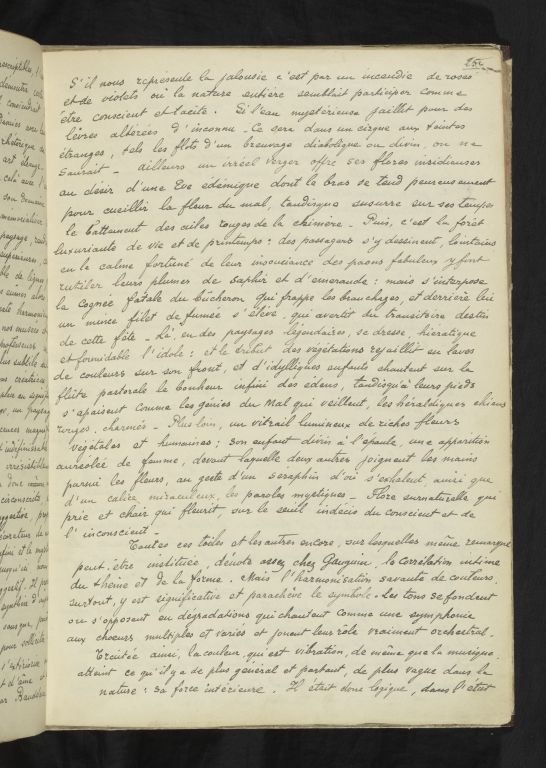 S'il nous représente la jalousie c'est par un incendie de roses
et de violets où la nature entière semblait participer comme
être conscient et tacite. Si l'eau mystérieuse jaillit pour des
lèvres altérées d'inconnu - Ce sera dans un cirque aux teintes
étranges, tels les flots d'un breuvage diabolique ou divin, on ne
saurait - Ailleurs un irréel verger offre ses flores insidieuses
au désir d'une Eve édénique dont le bras se tend peureusement
pour cueillir la fleur du mal, tandisque susurre sur ses tempes
le battement des ailes rouges de la chimère - Puis, c'est la forêt
luxuriante de vie et de printemps : des passagers s'y dessinent, lointains
en le calme fortuné de leur insouciance des paons fabuleux y font
rutiler leurs plumes de saphir et d'émeraude : mais s'interpose
la cognée fatale du bucheron qui frappe les branchages, et derrière lui
un mince filet de fumée s'élève, qui avertit du transitoire destin
de cette fête - Là, en des paysages légendaires, se dresse, hiératique
et formidable l'idole : et le tribut des végétations rejaillit en laves
de couleurs sur son front, et d'idylliques enfants chantent sur la
flûte pastorale le bonheur infini des édens, tandisqu'à leurs pieds
s'apaisent comme les génies du Mal qui veillent, les héraldiques chiens
rouges, charmés - Plus loin, un vitrail lumineux de riches fleurs
végétales et humaines : Son enfant divin à l'épaule, une apparition
auréolée de femme, devant laquelle deux autres joignent les mains
parmi les fleurs, au geste d'un séraphin d'où s'exhalent, ainsi que
d'un calice miraculeux, les paroles mystiques - Flore surnaturelle qui
prie et chair qui fleurit, sur le seuil indécis du conscient et de
l'inconscient -
Toutes ces toiles et les autres encore, sur lesquelles même remarque
peut être instituée, dénote assez chez Gauguin, la corrélation intime
du thème et de la forme. Mais l'harmonisation savante de couleurs,
surtout, y est significative et parachève le symbole. Les tons se fondent
ou s'opposent en dégradations qui chantent comme une symphonie
aux choeurs multiples et variés et jouent leur rôle vraiment orchestral.
Traitée ainsi, la couleur, qui est vibration, de même que la musique,
atteint ce qu'il y a de plus général et partant, de plus vague dans la
nature : sa force intérieure. Il était donc logique, dans l'état